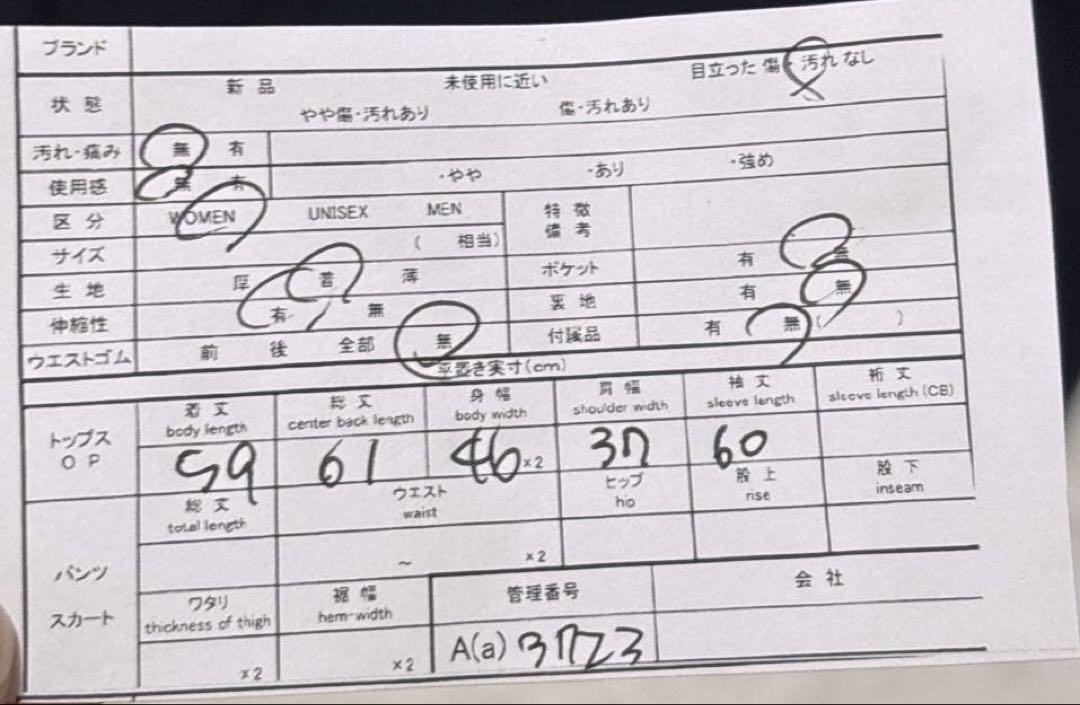 ブランド
状態
新品 未使用に近い 目立った傷・汚れなし
やや傷・汚れあり 傷・汚れあり
汚れ・痛み 無 有
使用感 無 有 ・やや ・あり ・強め
区分 WOMEN UNISEX MEN 特徴
備考
サイズ ( 相当)
生地 厚 普 薄 ポケット 有 無
伸縮性 有 無 裏地 有 無
ウエストゴム 前 後 全部 無 付属品 有 ( 無 ( )
平置き実寸(cm)
トップス
OP
着丈 総丈 身幅 肩幅 袖丈 裄丈
body length center back length body width shoulder width sleeve length sleeve length (CB)
59 61 46×2 37 60
パンツ
スカート
総丈 ウエスト ヒップ 股上 股下
total length waist hip rise inseam
~ ×2
ワタリ 裾幅 管理番号 会社
thickness of thigh hem-width
×2 ×2 A(a) 3723